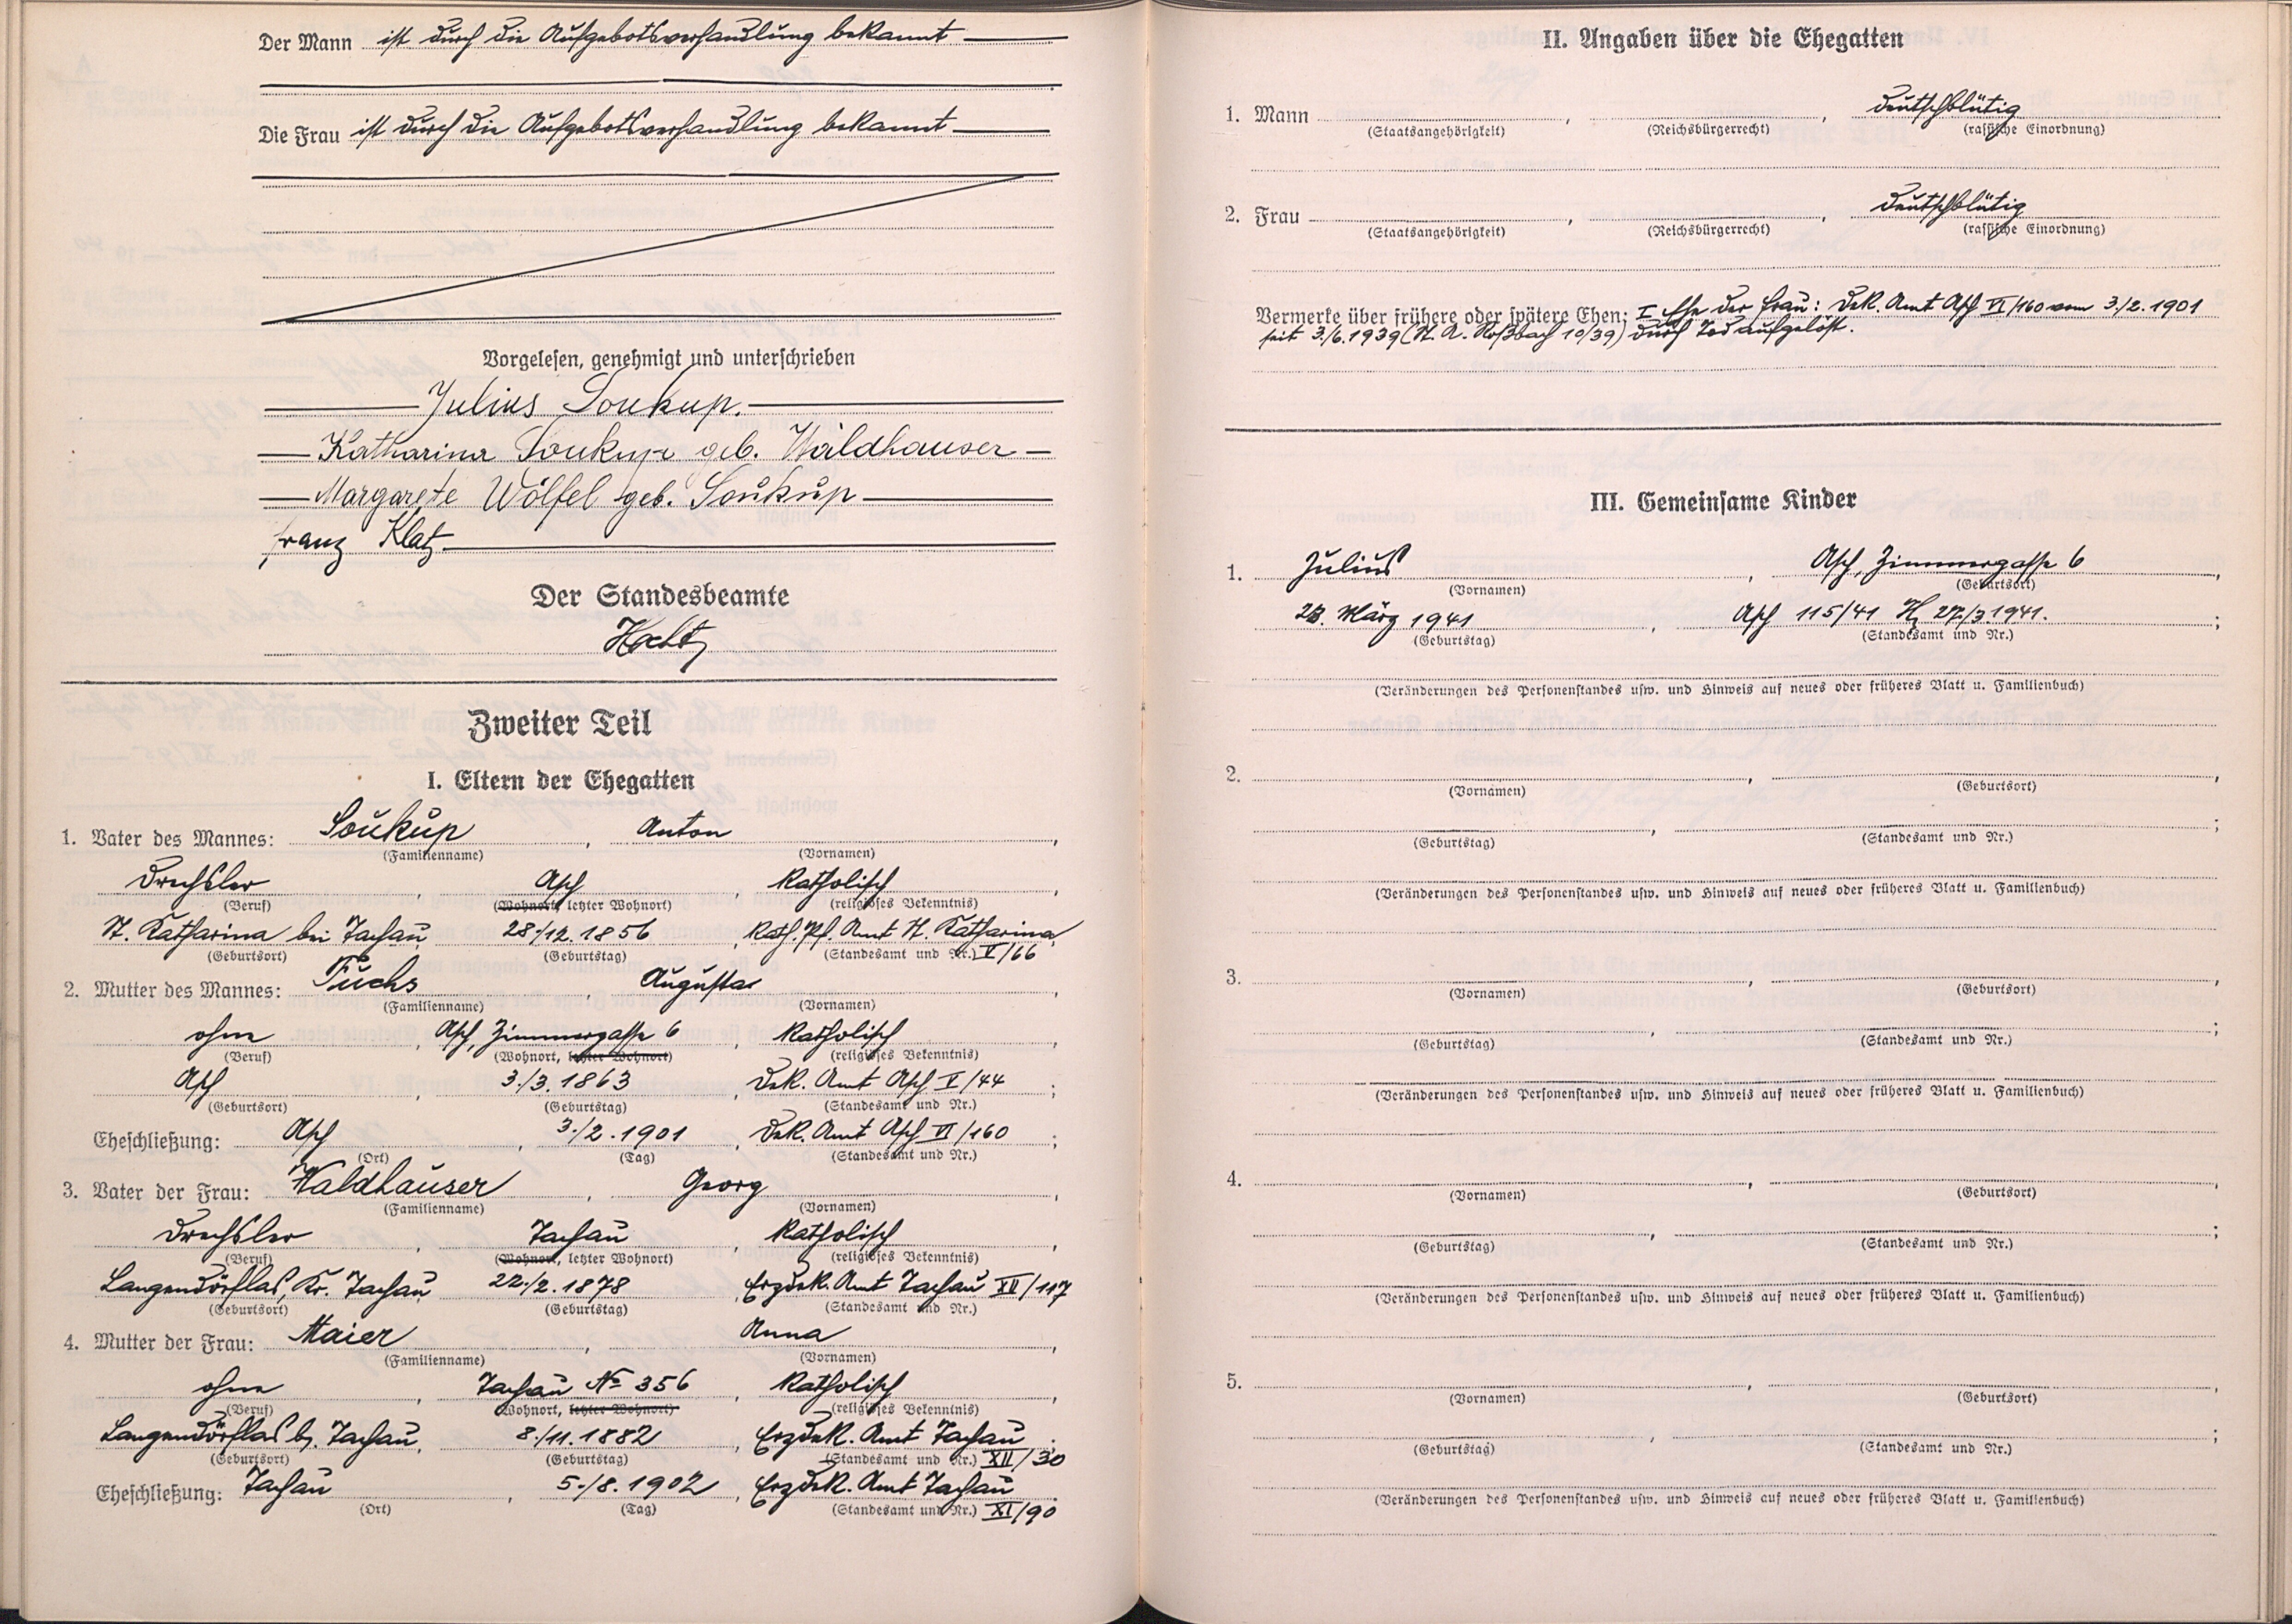 Der Mann ist durch die Aufgebotsverhandlung bekannt
Die Frau ist durch die Aufgebotsverhandlung bekannt
Vorgelesen, genehmigt und unterschrieben
Julius Soukup.
Katharina Soukup geb. Waldhauser
Margarete Wölfel geb. Soukup
Franz Klatz
Der Standesbeamte
Zweiter Teil
I. Eltern der Ehegatten
1. Vater des Mannes: Soukup, Anton,
(Familienname) (Vornamen)
Drechsler, Asch, katholisch,
(Beruf) (Wohnort, letzter Wohnort) (religiöses Bekenntnis)
St. Katharina bei Tachau, 28./12.1856, Kath. Pf. Amt St. Katharina
(Geburtsort) (Geburtstag) (Standesamt und Nr.) V/66
2. Mutter des Mannes: Fuchs, Augusta,
(Familienname) (Vornamen)
ohne, Asch, Zimmergasse 6, katholisch,
(Beruf) (Wohnort, letzter Wohnort) (religiöses Bekenntnis)
Asch, 3./3.1863, Dek. Amt Asch V/44;
(Geburtsort) (Geburtstag) (Standesamt und Nr.)
Eheschließung: Asch, 3./2.1901, Dek. Amt Asch VI/160;
(Ort) (Tag) (Standesamt und Nr.)
3. Vater der Frau: Waldhauser, Georg,
(Familienname) (Vornamen)
Drechsler, Tachau, katholisch,
(Beruf) (Wohnort, letzter Wohnort) (religiöses Bekenntnis)
Langendörflas, Kr. Tachau 22./2.1878, Erzdek. Amt Tachau XII/117
(Geburtsort) (Geburtstag) (Standesamt und Nr.)
4. Mutter der Frau: Maier, Anna,
(Familienname) (Vornamen)
ohne, Tachau No 356, katholisch,
(Beruf) (Wohnort, letzter Wohnort) (religiöses Bekenntnis)
Langendörflas b. Tachau, 8./11.1882, Erzdek. Amt Tachau;
(Geburtsort) (Geburtstag) (Standesamt und Nr.) XII/30
Eheschließung: Tachau, 5./8.1902, Erzdek. Amt Tachau
(Ort) (Tag) (Standesamt und Nr.) XI/90
II. Angaben über die Ehegatten
1. Mann , , deutschblütig
(Staatsangehörigkeit) (Reichsbürgerrecht) (rassische Einordnung)
2. Frau , , deutschblütig
(Staatsangehörigkeit) (Reichsbürgerrecht) (rassische Einordnung)
Vermerke über frühere oder spätere Ehen: I Ehe der Frau: Dek. Amt Asch VI/160 vom 3./2.1901
seit 3./6.1939 (St. A. Roßbach 10/39) durch Tod aufgelöst.
III. Gemeinsame Kinder
1. Julius, Asch, Zimmergasse 6,
(Vornamen) (Geburtsort)
März 1941, Asch 115/41 27/3.1941.;
(Geburtstag) (Standesamt und Nr.)
(Veränderungen des Personenstandes usw. und Hinweis auf neues oder früheres Blatt u. Familienbuch)
2. , ,
(Vornamen) (Geburtsort)
, ;
(Geburtstag) (Standesamt und Nr.)
(Veränderungen des Personenstandes usw. und Hinweis auf neues oder früheres Blatt u. Familienbuch)
3. , ,
(Vornamen) (Geburtsort)
, ;
(Geburtstag) (Standesamt und Nr.)
(Veränderungen des Personenstandes usw. und Hinweis auf neues oder früheres Blatt u. Familienbuch)
4. , ,
(Vornamen) (Geburtsort)
, ;
(Geburtstag) (Standesamt und Nr.)
(Veränderungen des Personenstandes usw. und Hinweis auf neues oder früheres Blatt u. Familienbuch)
5. , ,
(Vornamen) (Geburtsort)
, ;
(Geburtstag) (Standesamt und Nr.)
(Veränderungen des Personenstandes usw. und Hinweis auf neues oder früheres Blatt u. Familienbuch)